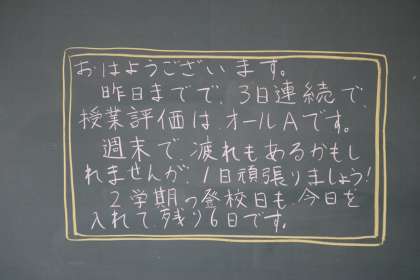 おはようございます。
昨日までで、3日連続で、
授業評価は、オールAです。
週末で、疲れもあるかもし
れませんが、1日頑張りましょう!
2学期の登校日も、今日を
入れて、残り6日です。